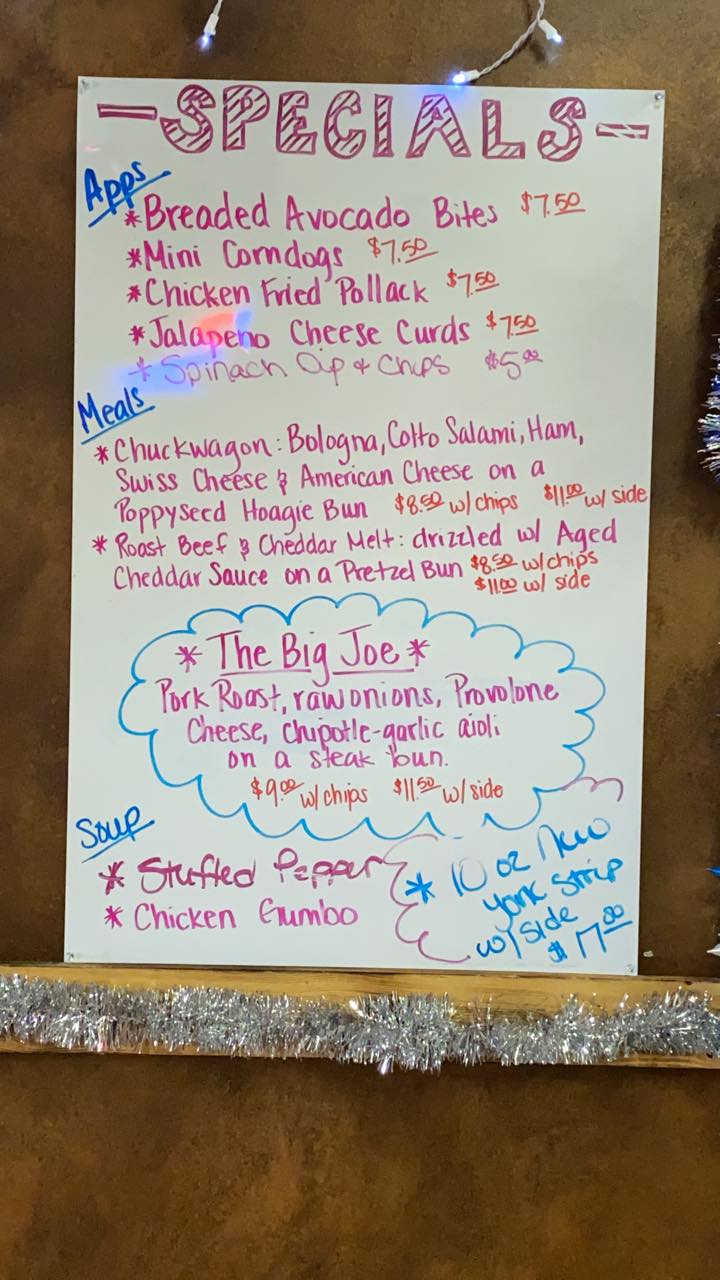 -SPECIALS-
Apps
*Breaded Avocado Bites $7.50
*Mini Corndogs $7.50
*Chicken Fried Pollack $7.50
*Jalapeno Cheese Curds $7.50
*Spinach Dip & Chips $5.00
Meals
*Chuckwagon: Bologna, Cotto Salami, Ham,
Swiss Cheese & American Cheese on a
Poppyseed Hoagie Bun $8.50 w/chips $11.00 w/ side
*Roast Beef & Cheddar Melt: drizzled w/ Aged
Cheddar Sauce on a Pretzel Bun $8.50 w/chips
$11.00 w/ side
*The Big Joe*
Pork Roast, raw onions, Provolone
Cheese, chipotle-garlic aioli
on a steak bun.
$9.00 w/chips $11.50 w/side
Soup
*Stuffed Pepper
*Chicken Gumbo
*10 oz New
York Strip
w/ side
$17.00